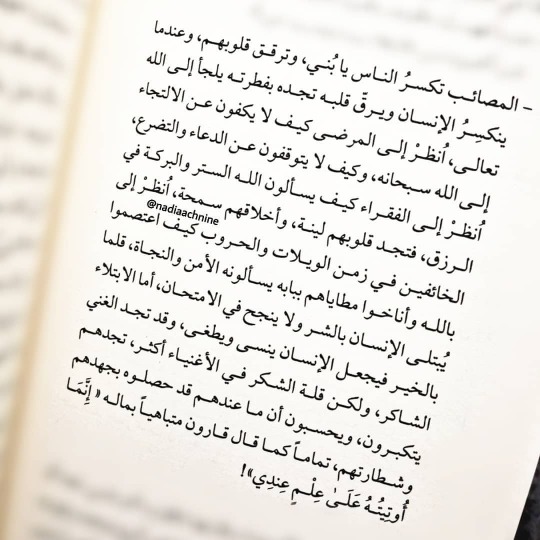 – المصائب تكسرُ الناس يا بُنـي، وترقـق قلوبهـم، وعندما
ينكسِرُ الإنسـان ويـرقّ قلبـه تجـده بفطرتـه يلجأ إلـى الله
تعالـى، اُنظرْ إلـى المرضـى كيـف لا يكفون عـن الالتجاء
إلـى الله سـبحانه، وكيف لا يتوقفون عـن الدعاء والتضرع،
اُنظرْ إلى الفقـراء كيـف يسـألون اللـه الستر والبركـة في
الـرزق، فتجـد قلوبهم لينـة، وأخلاقهم سـمحة، اُنظرْ إلى
@nadiaachnine
الخائفيـن فـي زمـن الويـلات والحـروب كيـف اعتصموا
باللـه وأناخـوا مطاياهم ببابه يسـألونه الأمن والنجـاة، قلما
يُبتلـى الإنسـان بالشـر ولا ينجح في الامتحـان، أما الابتلاء
بالخيـر فيجعـل الإنسـان ينسـى ويطغـى، وقد تجـد الغني
الشـاكر، ولكـن قلـة الشـكر فـي الأغنيـاء أكثـر، تجدهـم
يتكبـرون، ويحسـبون أن مـا عندهـم قد حصلـوه بجهدهم
وشـطارتهم، تمامـاً كمـا قـال قـارون متباهيـاً بمالـه « إِنَّمَـا
أُوتِيتُـهُ عَلَـىٰ عِلْـمٍ عِندِي»!